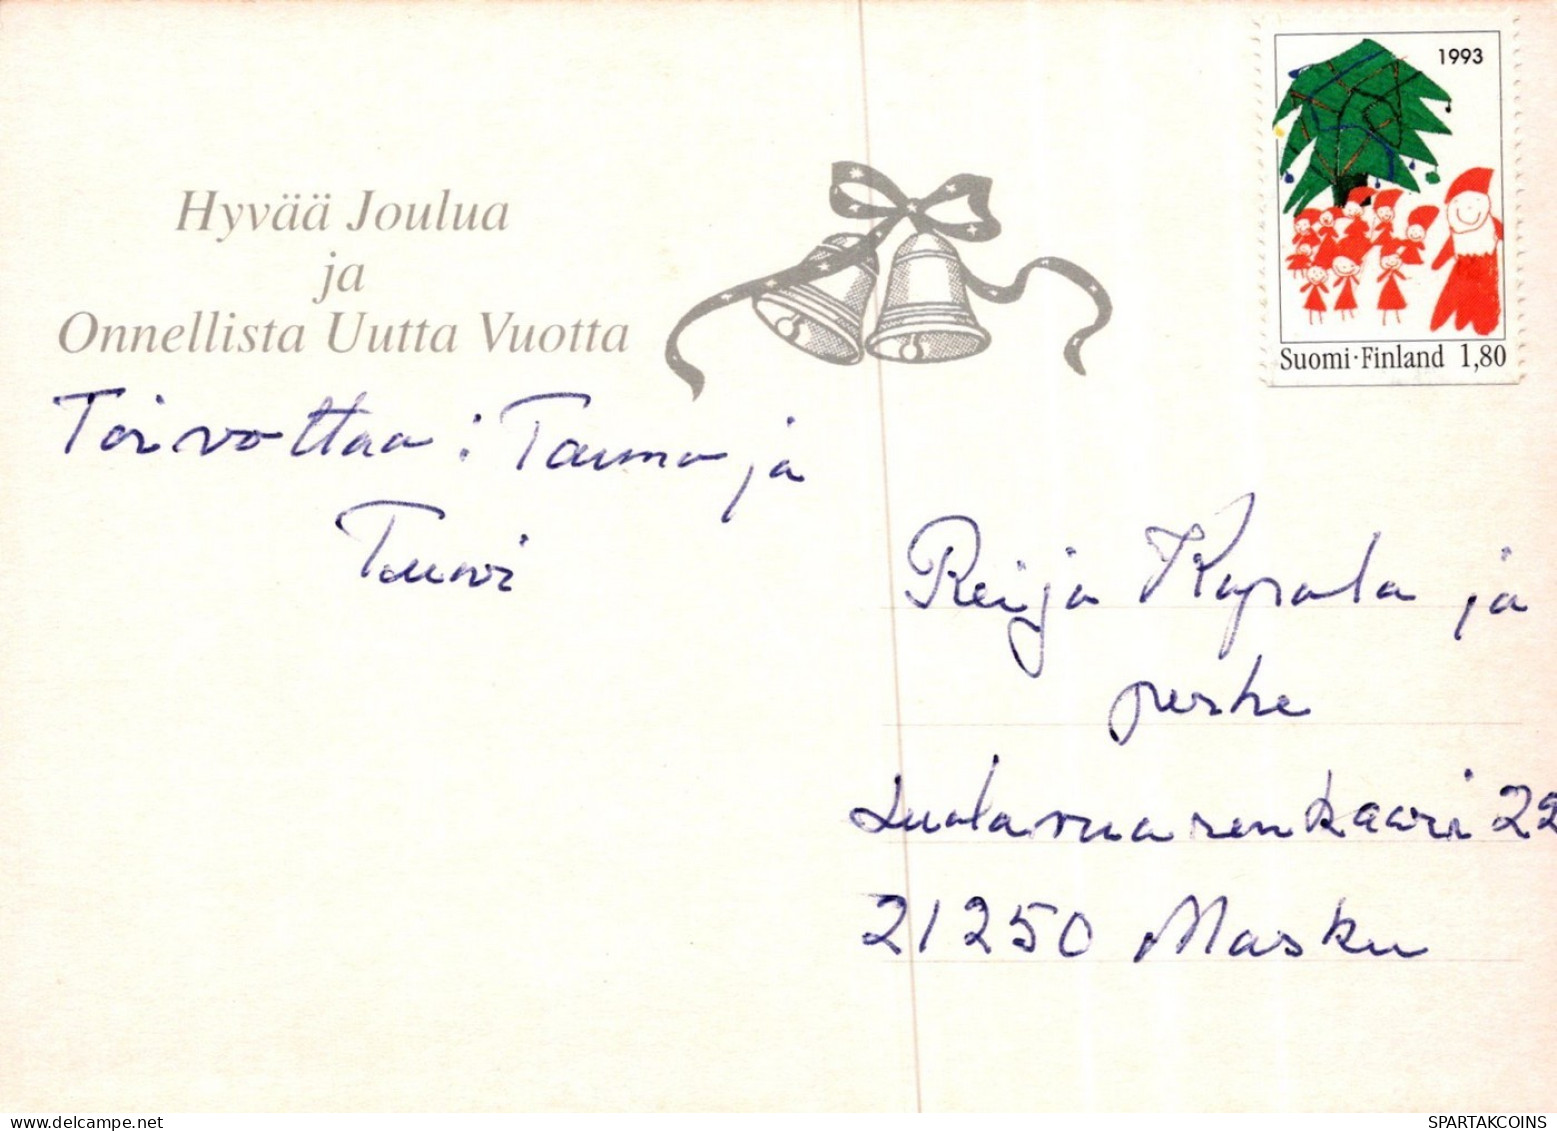 1993
Suomi·Finland 1,80
Hyvää Joulua
ja
Onnellista Uutta Vuotta
Toivottaa: Taimo ja
Tuovi
Reija Kapala ja
perhe
Luolavuorenkaari 22
21250 Masku
SPARTAKCOINS